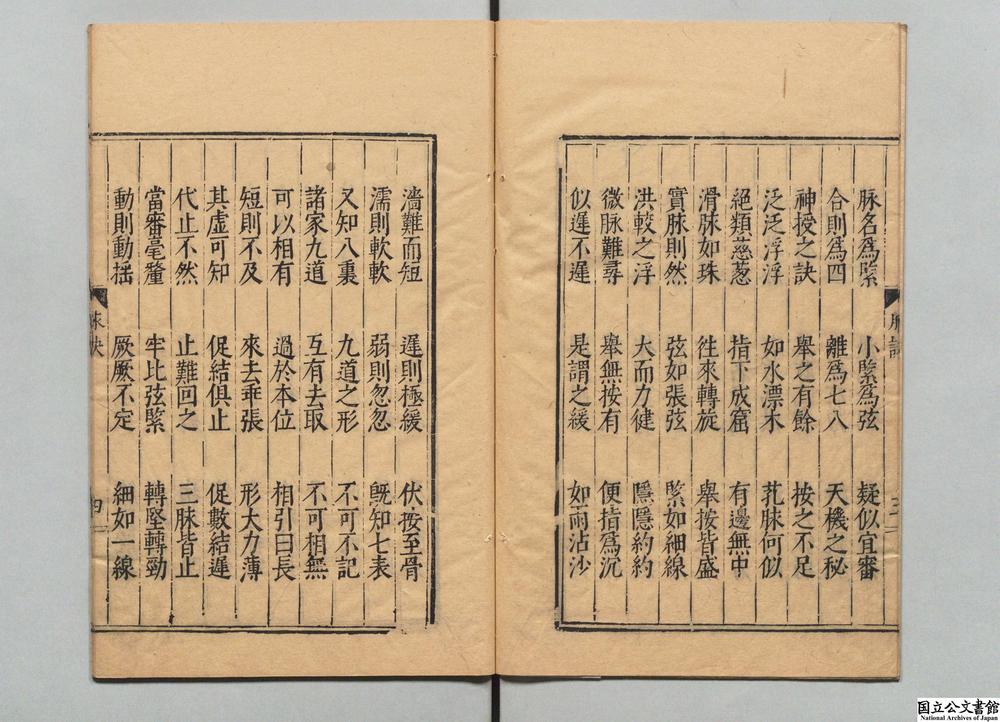 脉名爲緊　小緊爲弦　疑似宜審
合則爲四　離爲七八　天機之秘
神授之訣　舉之有餘　按之不足
泛泛浮浮　如水漂木　芤脉何似
絕類慈葱　指下成窟　有邊無中
滑脉如珠　徃來轉旋　舉按皆盛
實脉則然　弦如張弦　緊如細線
洪較之浮　大而力健　隱隱約約
微脉難尋　舉無按有　便指爲沉
似遲不遲　是謂之緩　如雨沾沙
濇難而短　遲則極緩　伏按至骨
濡則軟軟　弱則忽忽　旣知七表
又知八裏　九道之形　不可不記
諸家九道　互有去取　不可相無
可以相有　過於本位　相引曰長
短則不及　來去乖張　形大力薄
其虛可知　促結俱止　促數結遲
代止不然　止難回之　三脉皆止
當審毫釐　牢比弦緊　轉堅轉勁
動則動揺　厥厥不定　細如一線
脉訣
四
国立公文書館
National Archives of Japan